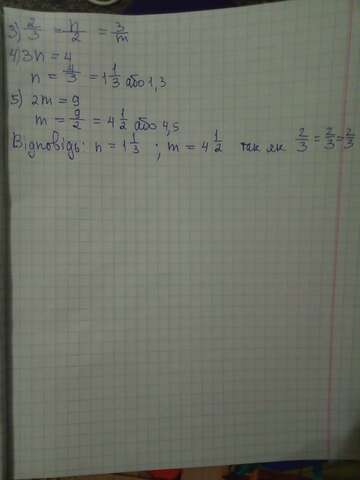 3) 2/3 = n/2 = 3/m
4) 3n = 4
n = 4/3 = 1 1/3 або 1,3
5) 2m = 9
m = 9/2 = 4 1/2 або 4,5
Відповідь: n = 1 1/3 ; m = 4 1/2 так як 2/3 = 2/3 = 2/3